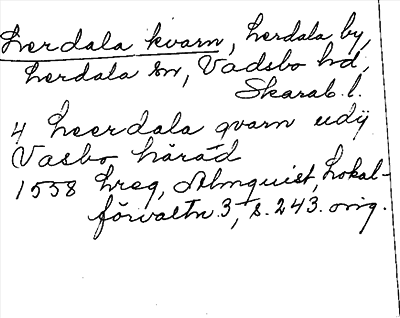 Lerdala kvarn, Lerdala by,
Lerdala sn, Vadsbo hd,
Skarab. l.
4 Leerdala qvarn udÿ
Vasbo häråd
1558 Lreg, Almquist, Lokal-
förvaltn. 3, s. 243. orig.